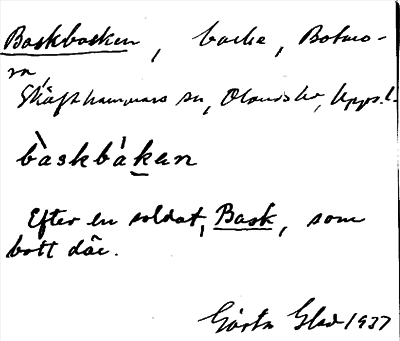 Baskbacken, backe, Botmo-
ra,
Skäfthammars sn, Olands hd, Upps. l.
bàskbákan
Efter en soldat, Bask, som
bott där.
Gösta Glad 1937